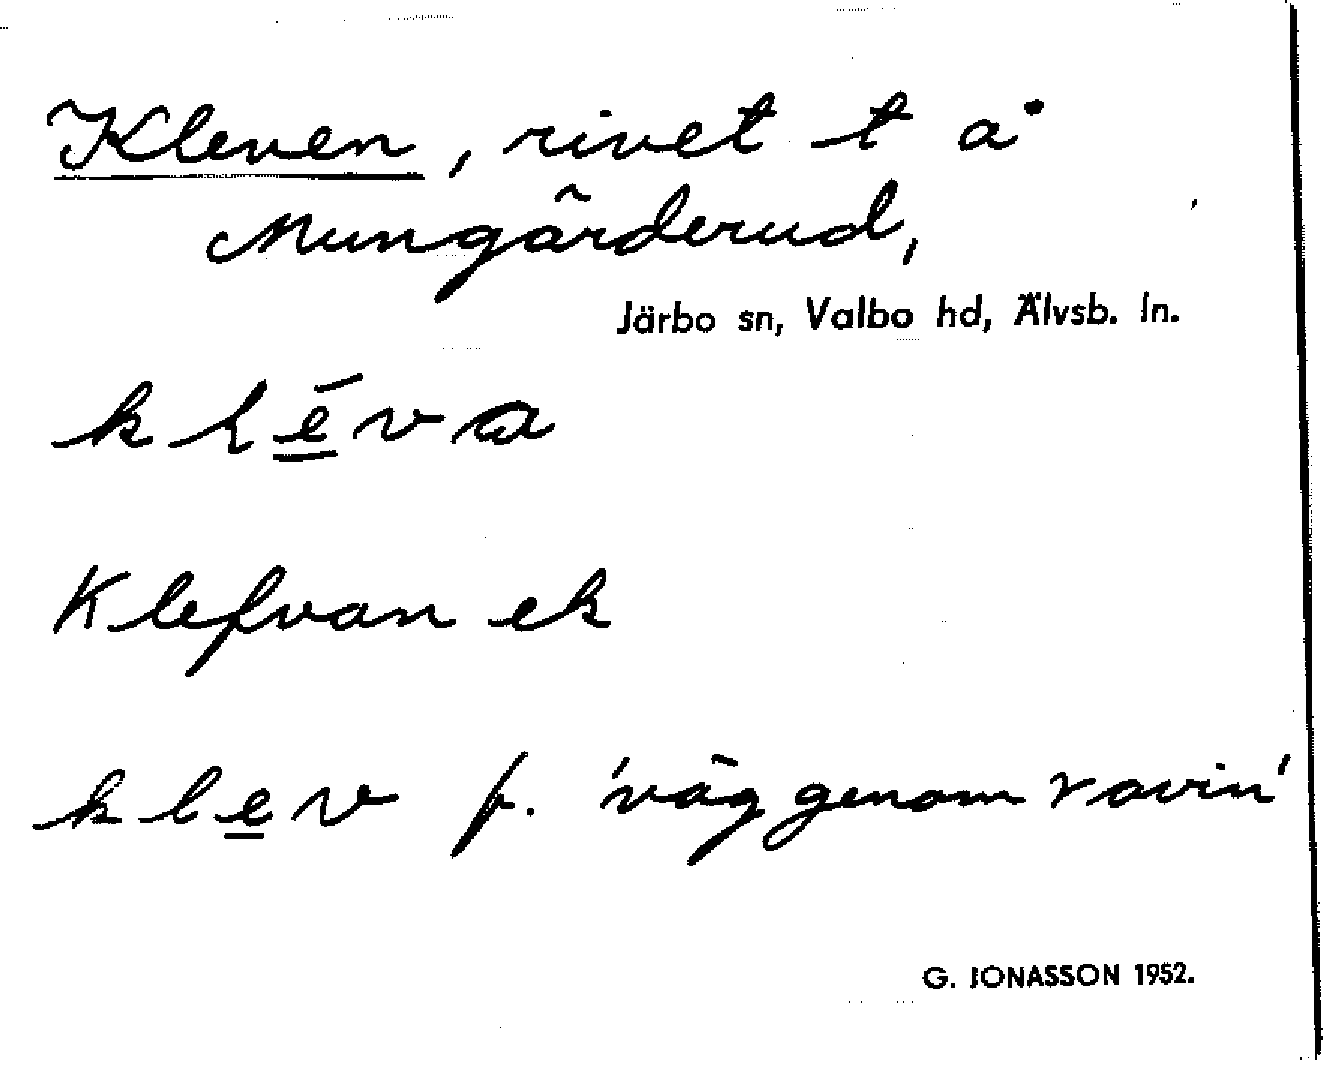 Kleven, rivet t å
Mungärderud,
Järbo sn, Valbo hd, Älvsb. ln.
klēva
Klefvan ek
klev f. 'väg genom ravin'
G. JONASSON 1952.